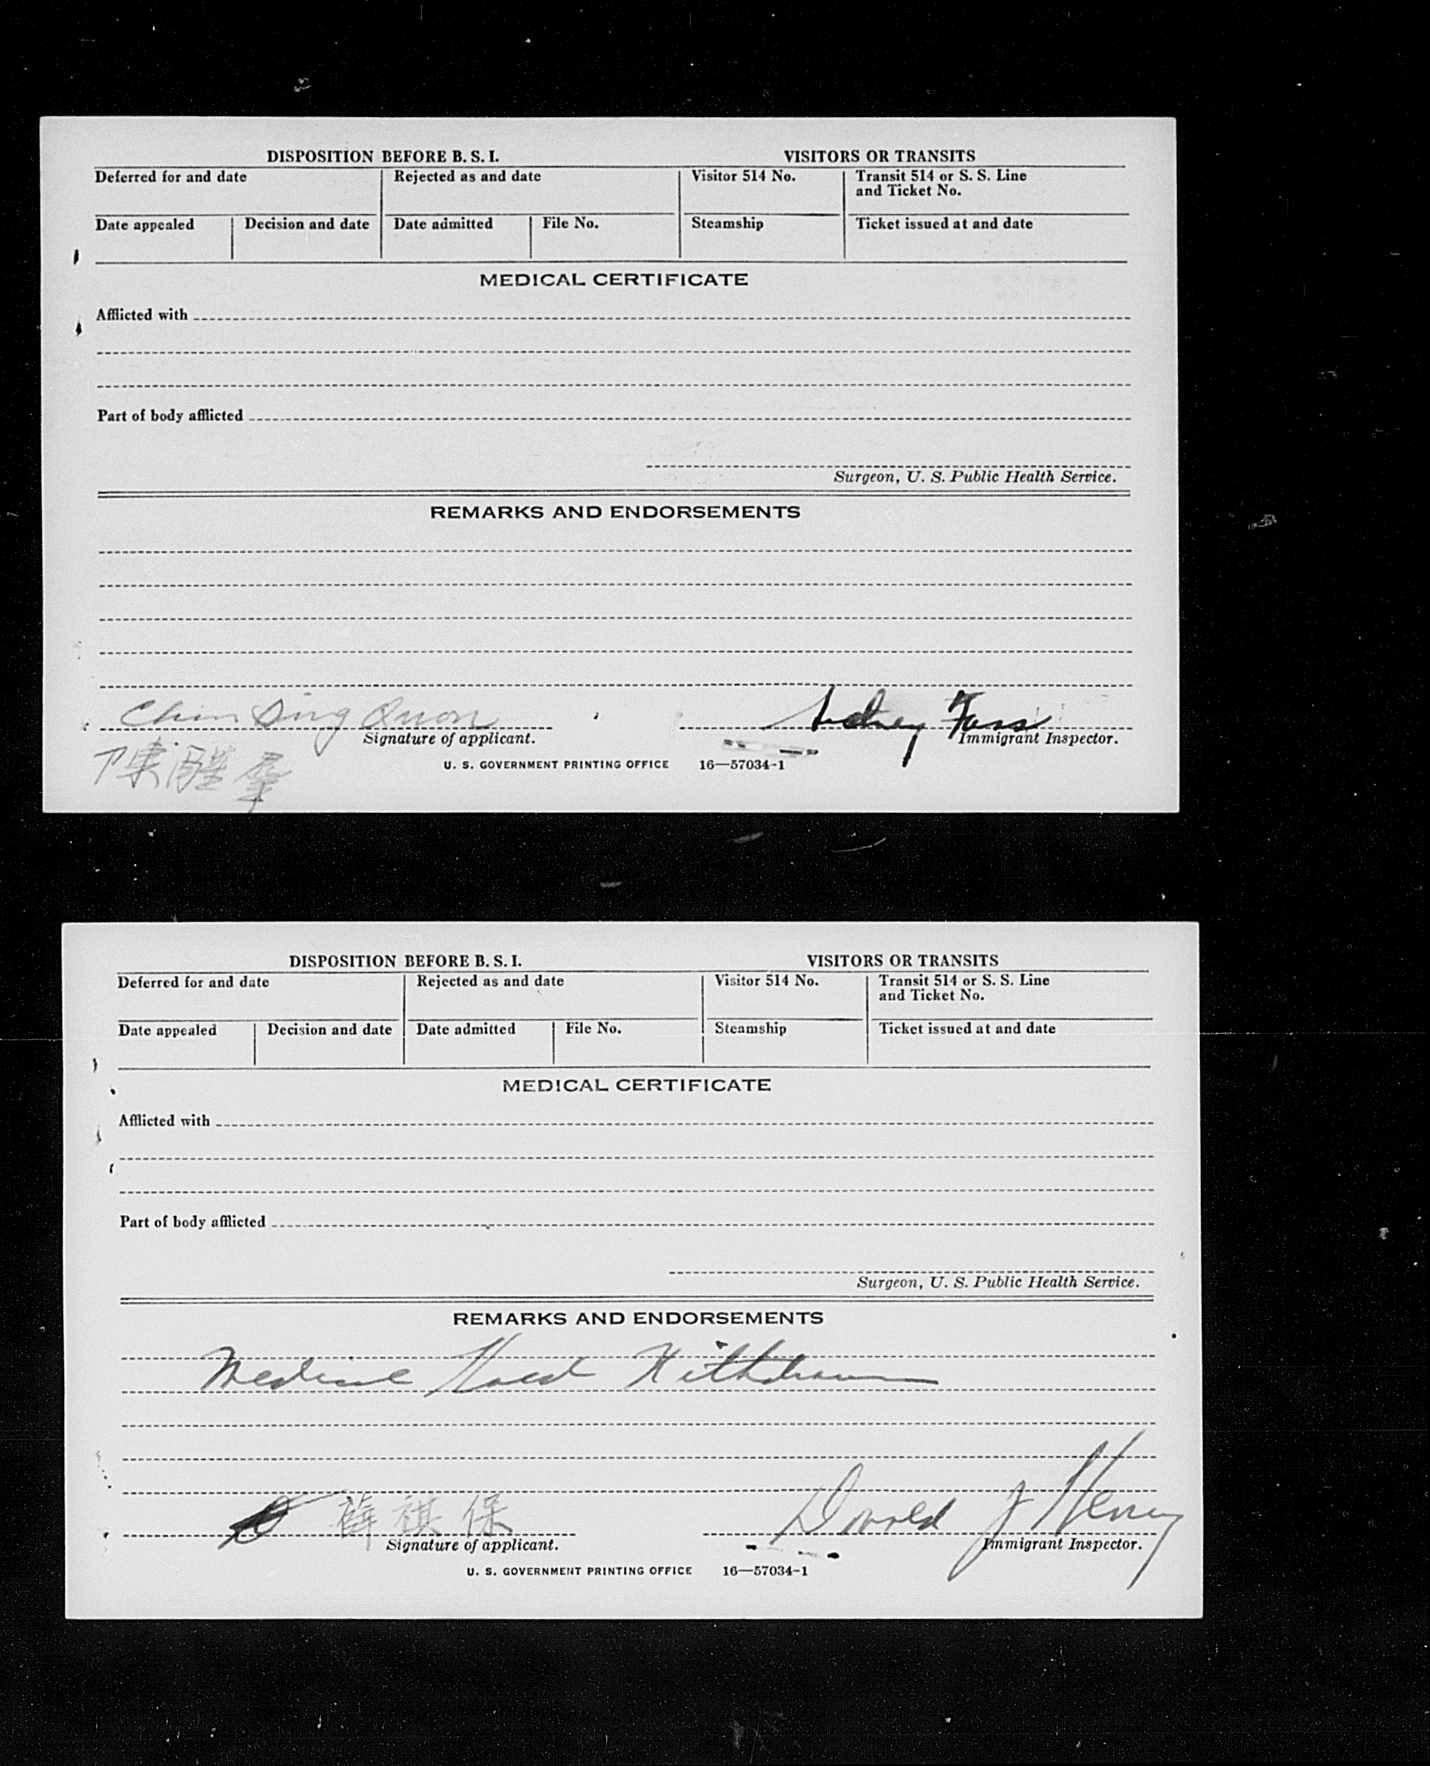 DISPOSITION BEFORE B. S. I. VISITORS OR TRANSITS
Deferred for and date Rejected as and date Visitor 514 No. Transit 514 or S. S. Line
and Ticket No.
Date appealed Decision and date Date admitted File No. Steamship Ticket issued at and date
MEDICAL CERTIFICATE
Afflicted with
Part of body afflicted
Surgeon, U. S. Public Health Service.
REMARKS AND ENDORSEMENTS
Chin Sing Quon Sidney Fass
Signature of applicant. Immigrant Inspector.
陳 羣
U. S. GOVERNMENT PRINTING OFFICE 16—57034-1
DISPOSITION BEFORE B. S. I. VISITORS OR TRANSITS
Deferred for and date Rejected as and date Visitor 514 No. Transit 514 or S. S. Line
and Ticket No.
Date appealed Decision and date Date admitted File No. Steamship Ticket issued at and date
MEDICAL CERTIFICATE
Afflicted with
Part of body afflicted
Surgeon, U. S. Public Health Service.
REMARKS AND ENDORSEMENTS
Medical Hold Withdrawn
薛祺保 Donald J Henry
Signature of applicant. Immigrant Inspector.
U. S. GOVERNMENT PRINTING OFFICE 16—57034-1